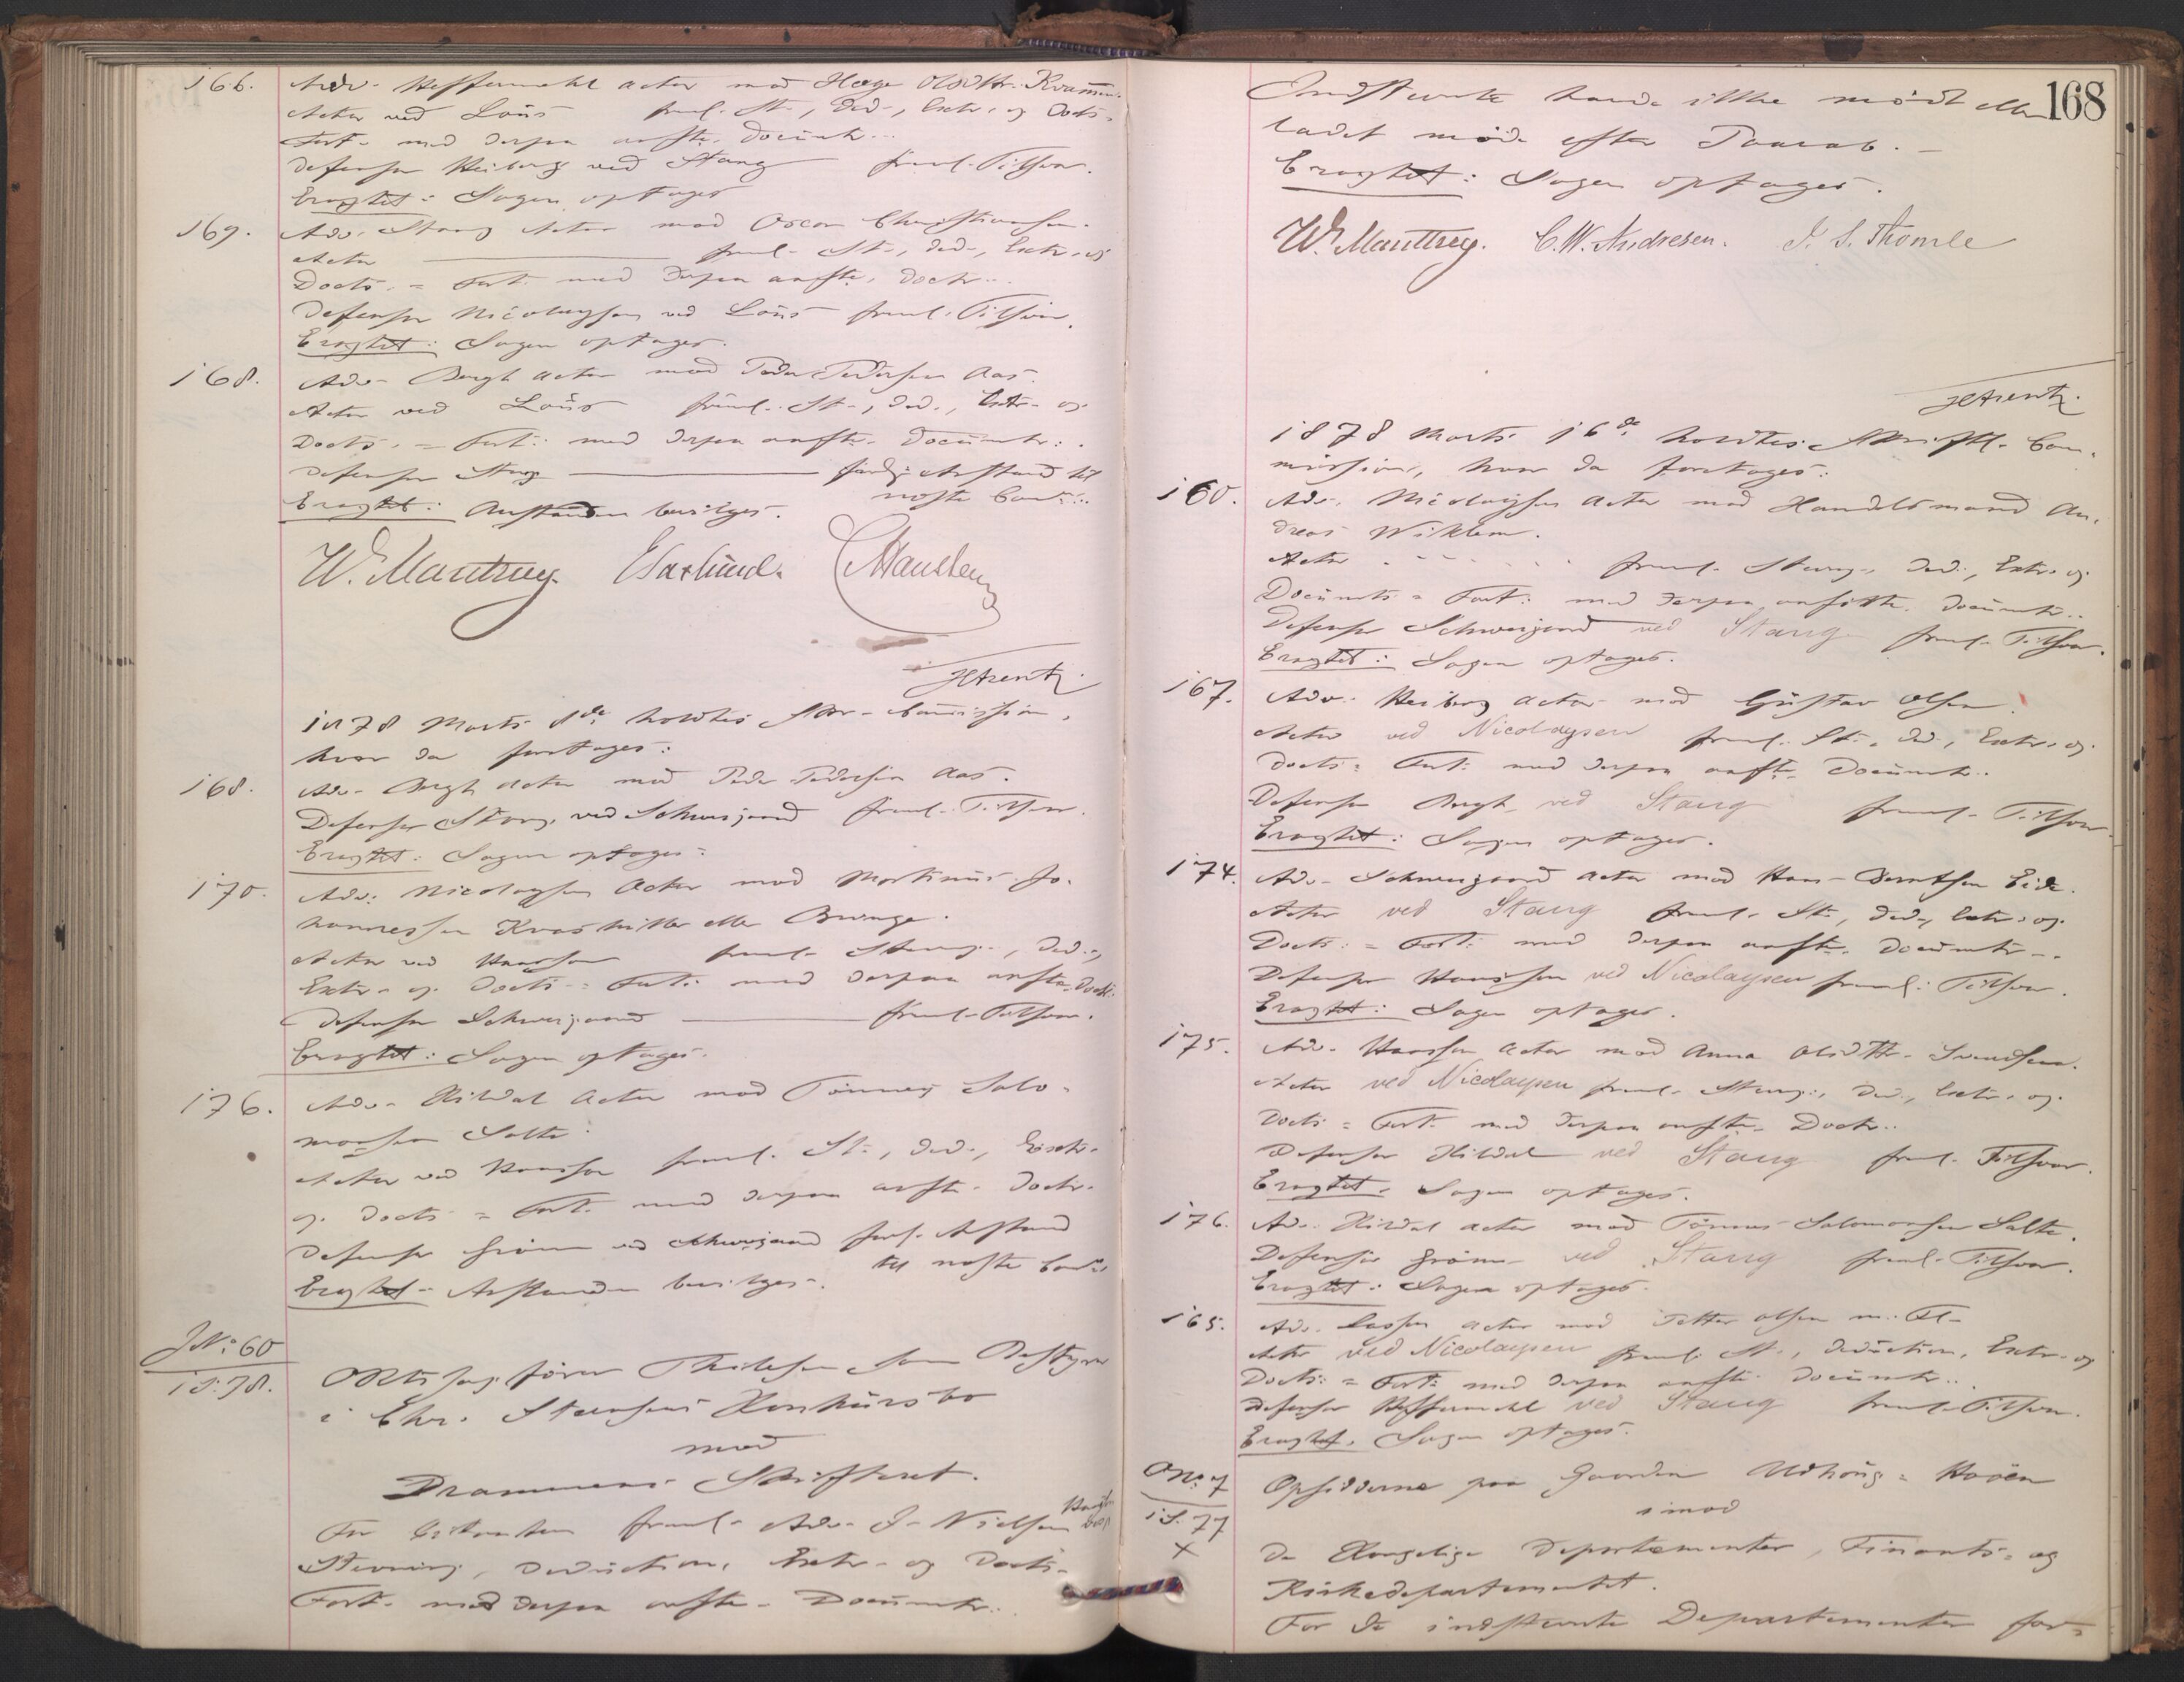 166. Adv. Hesselmahl Actor mod Hege Olsdttr. Kvammen.
Actor ved Löus freml. St., Ded., Extr. og Docts.
Fort. med derpaa anfte. Documtr.
Defensor Heiberg ved Stang freml. Tilsvar.
Eragtet: Sagen optages
169. Adv. Stang Actor mod Oscar Christiansen.
Actor freml. St., Ded., Extr. og
Docts. = Fort. med derpaa anfte. Doctr.
Defensor Nicolaysen ved Löus freml. Tilsvar.
Eragtet: Sagen optages.
168. Adv. Bergh Actor mod Peder Pedersen Aas.
Actor ved Löus freml. St., Ded., Extr. og
Docts. = Fort. med derpaa anfte. Documtr.
Defensor Stang forl. Anstand til
næste Com.
Eragtet: Anstanden bevilges.
W. Mantzey.
JC Arentz.
1878 Marts 9de holdtes Skr. Commission,
hvor da foretages:
168. Adv. Bergh Actor mod Peder Pedersen Aas.
Defensor Stang ved Schweigaard freml. Tilsvar.
Eragtet: Sagen optages.
170. Adv. Nicolaysen Actor mod Martinus Jo-
hannessen Kvashitter eller Bringe.
Actor ved Haassen freml. Stevng., Ded.,
Extr. og Docts. = Fort. med derpaa anfte. Doctr.
Defensor Schweigaard freml. Tilsvar.
Eragtet: Sagen optages.
176. Adv. Hildal Actor mod Tönnes Salo-
monsen Salte.
Actor ved Haassen freml. St., Ded., Extr.
og Docts. = Fort. med derpaa anfte. Doctr.
Defensor Grönn ved Schweigaard forl. Anstand
til næste Com.
Eragtet. Anstanden bevilges.
JNo. 60
i S. 78.
Overretssagförer Thilesen som Bestyrer
i Chr. Steensens Konkursbo
mod
Drammens Skifteret.
For Citanten freml. Adv. J. Nielsen
Stevning, Deduction, Extr. og Docts.
Fort. med derpaa anfte. Documtr.
168
Indstevnte havde ikke mödt eller
ladet möde efter Paaraab.
Eragtet: Sagen optages.
W. Mantzey. C. W. Andresen. J. S. Thomle
JC Arentz.
1878 Marts 16de holdtes Skriftl. Com-
mission, hvor da foretages:
160. Adv. Nicolaysen Actor mod Handelsmand An-
dreas Wiklem.
Actor freml. Stevng., Ded., Extr. og
Documts. = Fort. med derpaa anförte Documtr.
Defensor Schweigaard ved Stang freml. Tilsvar.
Eragtet: Sagen optages.
167. Adv. Heiberg Actor mod Gustav Olsen.
Actor ved Nicolaysen freml. St., Ded., Extr. og
Docts. = Fort. med derpaa anfte. Documtr.
Defensor Bergh ved Stang freml. Tilsvar.
Eragtet: Sagen optages.
174. Adv. Schweigaard Actor mod Hans Berntsen Eide.
Actor ved Stang freml. St., Ded., Extr. og
Docts. = Fort. med derpaa anfte. Documtr.
Defensor Haassen ved Nicolaysen freml. Tilsvar.
Eragtet: Sagen optages.
175. Adv. Haassen Actor mod Anna Olsdttr. Svendsen.
Actor ved Nicolaysen freml. Stevng., Ded., Extr. og
Docts. = Fort. med derpaa anfte. Doctr.
Defensor Hildal ved Stang freml. Tilsvar.
Eragtet. Sagen optages.
176. Adv. Hildal Actor mod Tönnes Salomonsen Salte.
Defensor Grönn ved Stang freml. Tilsvar.
Eragtet: Sagen optages.
165. Adv. Lassen Actor mod Petter Olsen m. Fl.
Actor ved Nicolaysen freml. St., Deduction, Extr. og
Docts. = Fort. med derpaa anfte. Documtr.
Defensor Hesselmahl ved Stang freml. Tilsvar.
Eragtet. Sagen optages.
No. 7
i S. 77
X
Opsidderne paa Gaarden Udhöug = Haöen
imod
de Kongelige Departementer, Finants- og
Kirkedepartementet.
For de indstevnte Departementer for-